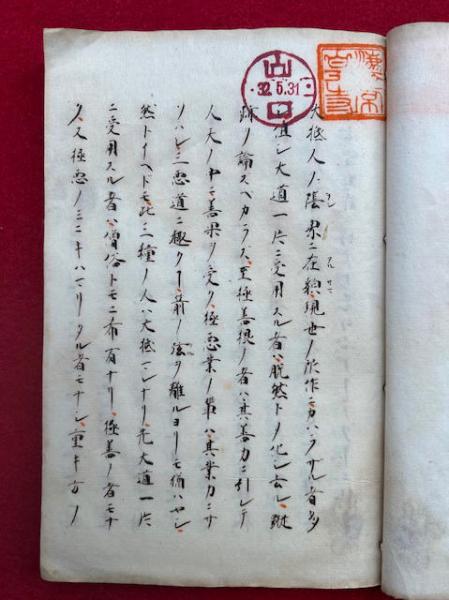 山口
32.5.31
大抵人ノ陰界ニ在ル現世ノ所作ニカハラザル者多
シ大道一片ニ受用スル者ハ脱然トノ化シ去レ
跡ノ論スベカラス至極善根ノ者ハ其善力ニ引レテ
人天ノ中ニ善果ヲ受ク極悪業ノ輩ハ其業力ニサ
ソハレ三悪道ニ趣クコ箭ノ弦ヲ離ルヨリモ猶ハヤシ
然トイヘドモ此三種ノ人ハ大抵マレナリ先大道一片
ニ受用スル者ハ僧俗トモニ希有ナリ極善ノ者モナ
ク又極悪ノミニキハマリタル者モナシ重キ方ノ